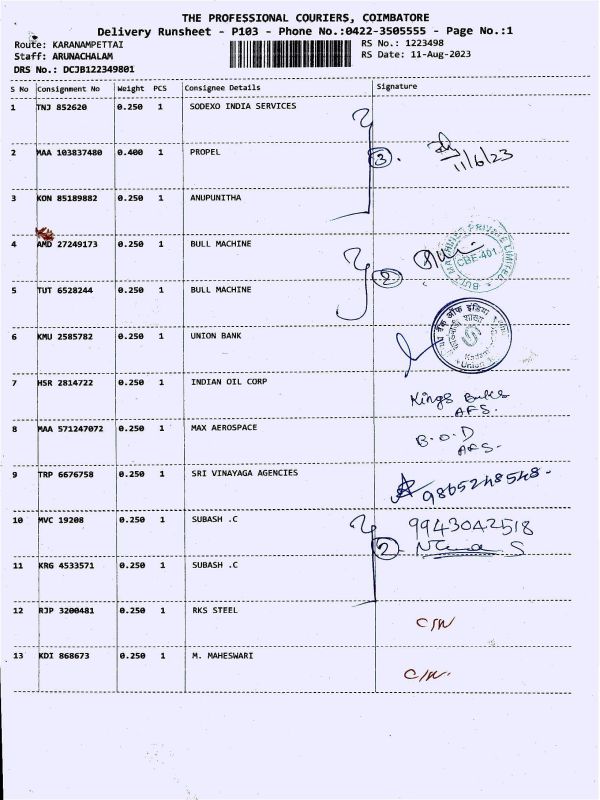 THE PROFESSIONAL COURIERS, COIMBATORE
Delivery Runsheet - P103 - Phone No.:0422-3505555 - Page No.:1
Route: KARANAMPETTAI RS No.: 1223498
Staff: ARUNACHALAM RS Date: 11-Aug-2023
DRS No.: DCJB122349801
S No Consignment No Weight PCS Consignee Details Signature
1 TNJ 852620 0.250 1 SODEXO INDIA SERVICES
2 MAA 103837480 0.400 1 PROPEL 3. 11/6/23
3 KON 85189882 0.250 1 ANUPUNITHA
4 AMD 27249173 0.250 1 BULL MACHINE 2 CBE-401
5 TUT 6528244 0.250 1 BULL MACHINE
6 KMU 2585782 0.250 1 UNION BANK
7 HSR 2814722 0.250 1 INDIAN OIL CORP Kings
8 MAA 571247072 0.250 1 MAX AEROSPACE B.O.D
9 TRP 6676758 0.250 1 SRI VINAYAGA AGENCIES 9865248548-
10 MVC 19208 0.250 1 SUBASH .C 2. 9943042518
11 KRG 4533571 0.250 1 SUBASH .C
12 RJP 3200481 0.250 1 RKS STEEL C/W
13 KDI 868673 0.250 1 M. MAHESWARI C/W.